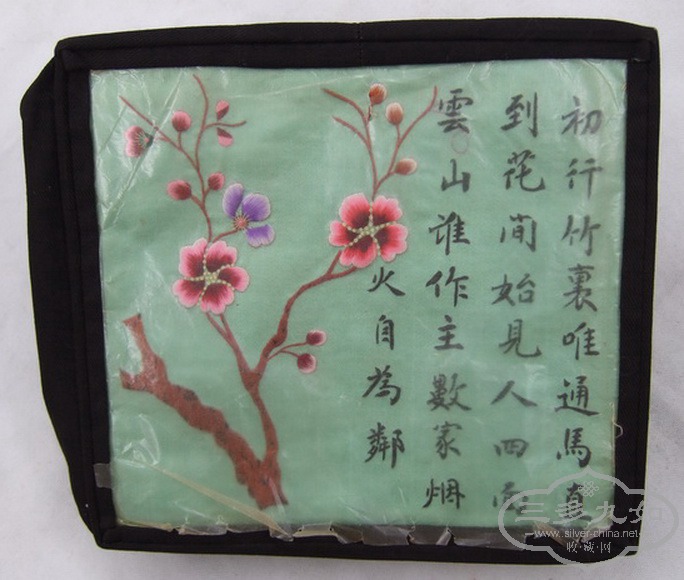 初行竹裏唯通馬直
到花間始見人四面
雲山誰作主數家烟
火自為鄰
三多九如
www.silver-china.net
收·藏·网